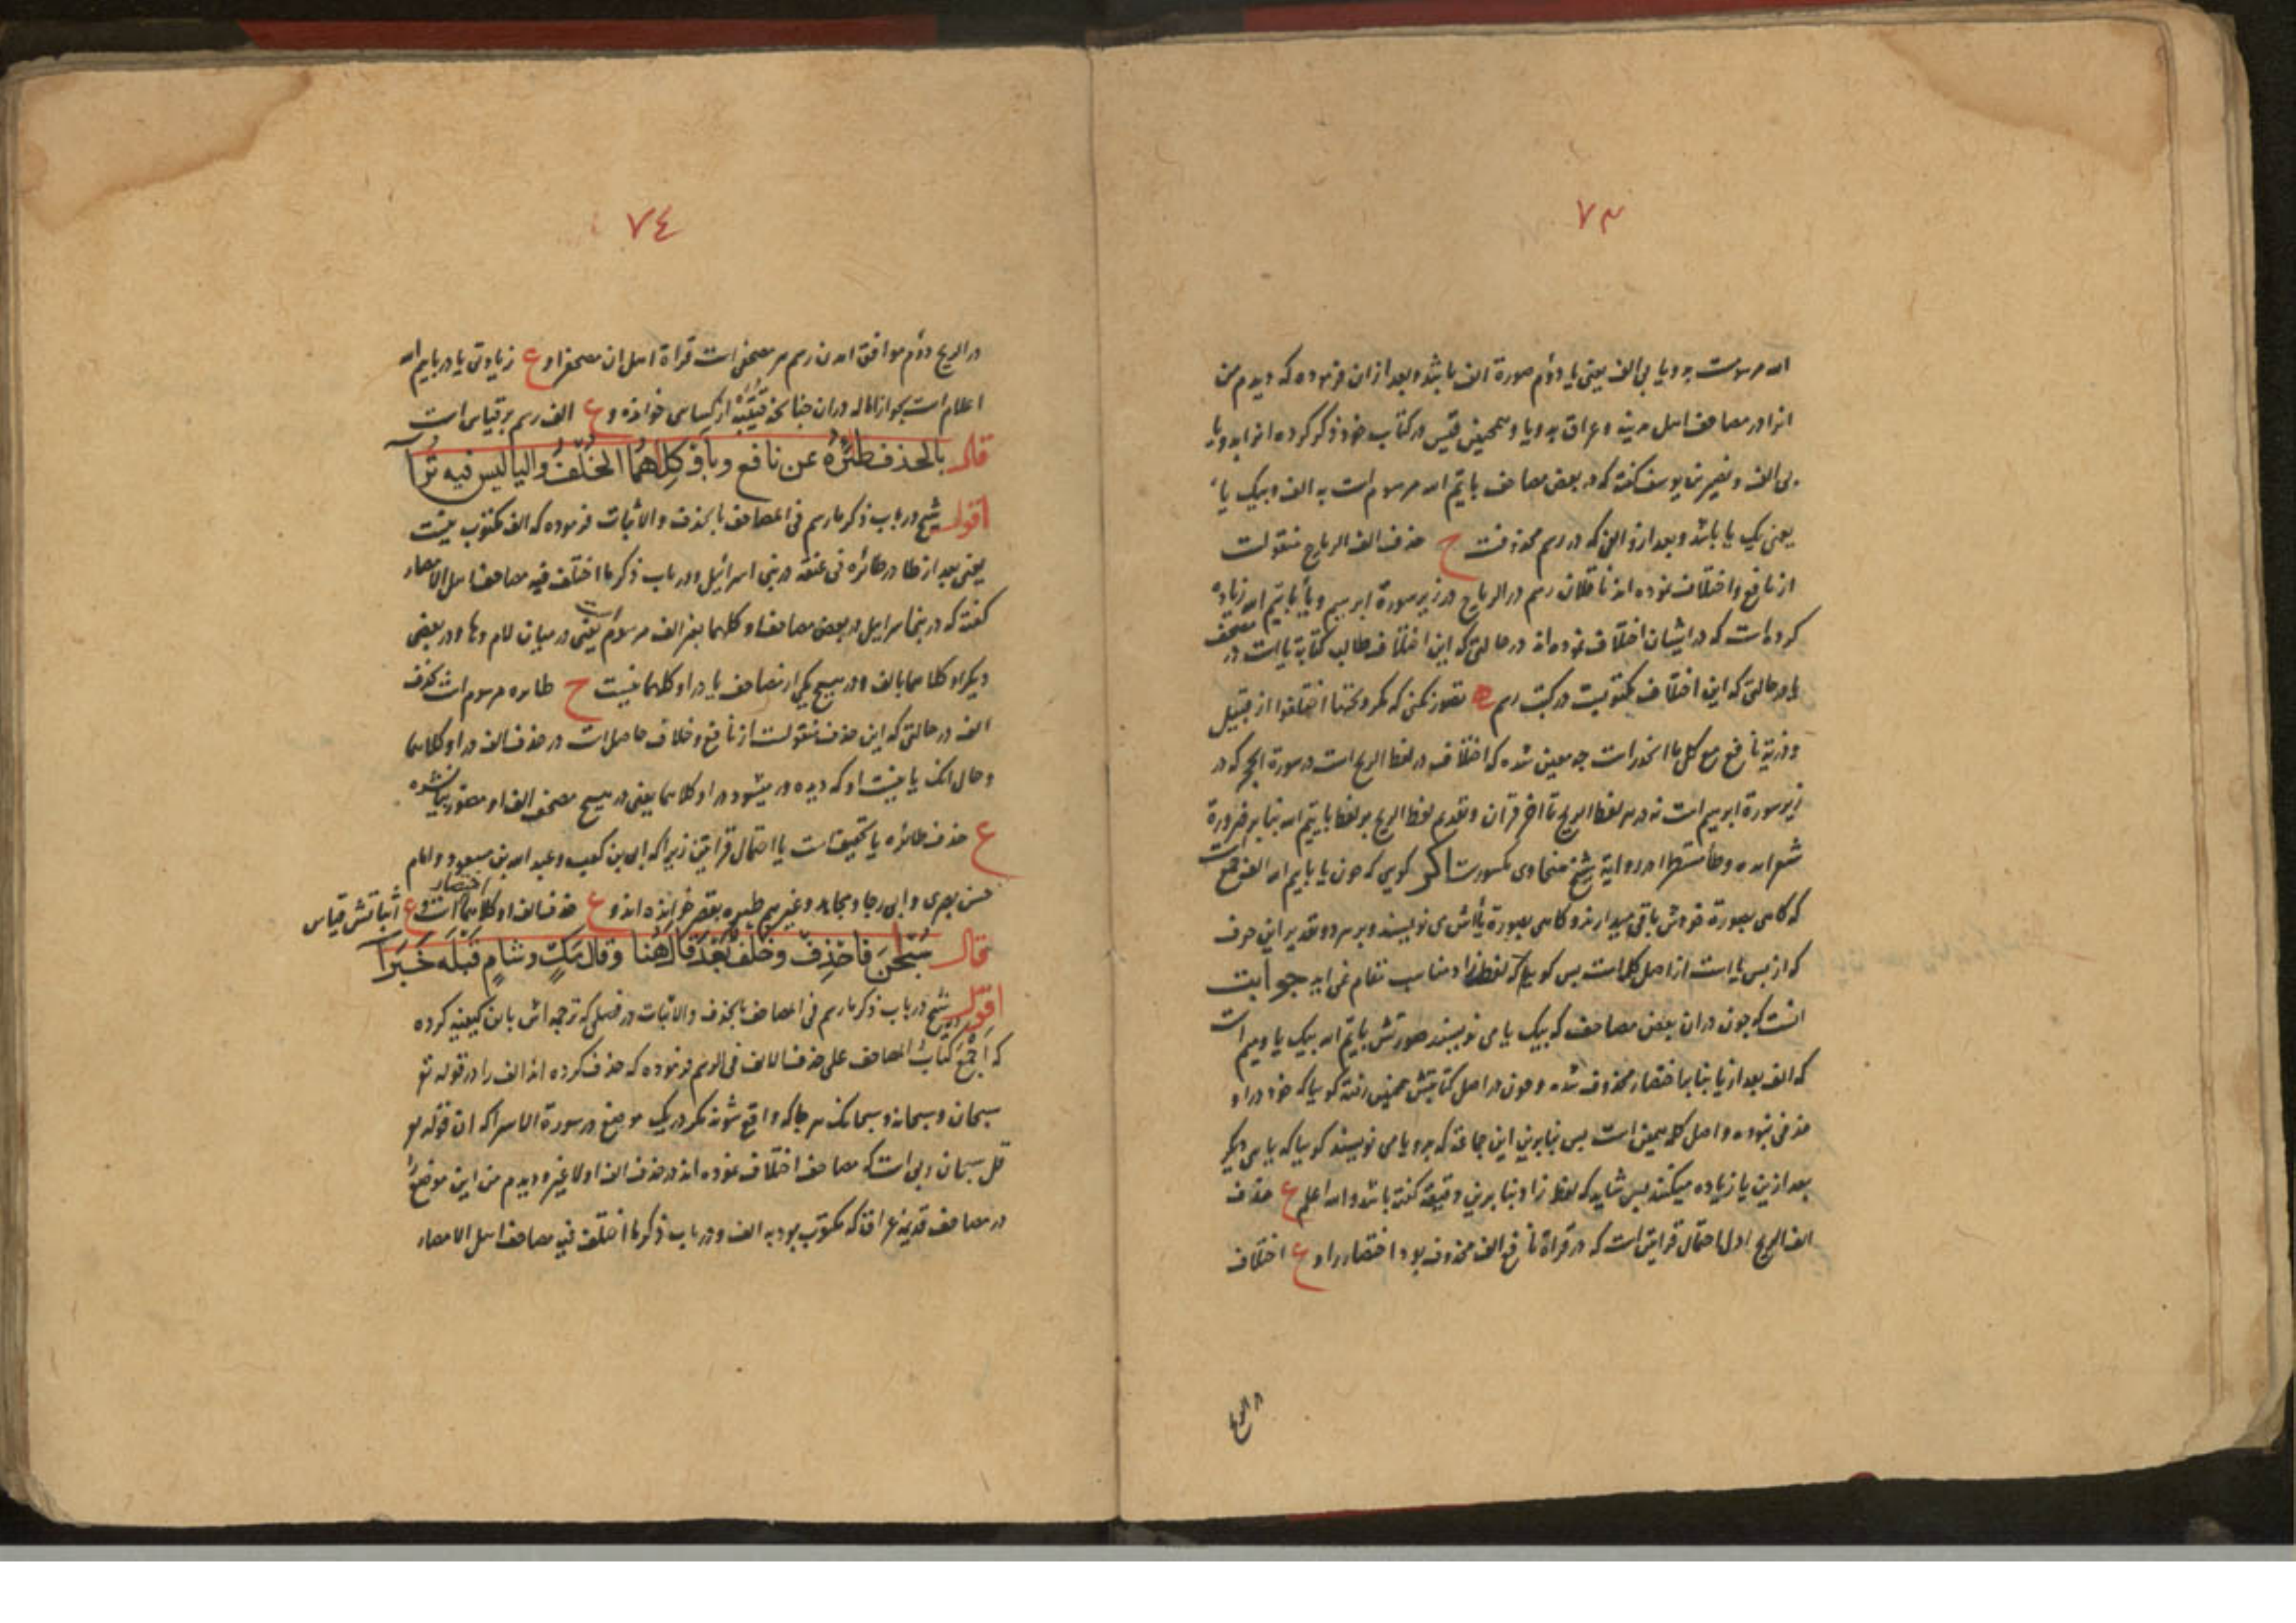 ٧٣
الله مرسومست بدو یا بی الف یعنی یا دوم صورة الف باشد و بعد ازان فرموده که دیدم من
انرا در مصاحف اهل مدینه و عراق بدو یا و همچنین در کتاب خود ذکر کرده انرا بدو یا
بی الف و نصیر بن یوسف گفته که در بعض مصاحف بایّم الله مرسوم است به الف و بیک یا
یعنی یک یا باشد و بعد ازو الفی که در رسم محذوفست ح حذف الف الریاح منقولست
از نافع و اختلاف نموده اند ناقلان رسم در الریاح در زیر سورة ابرهیم و یا بایّم الله زیاده
کرده است که در ایشان اختلاف نموده اند در حالتی که این اختلاف طالب کتابة یا است در مصحف
یا در حالتی که این اختلاف مکتوبست در کتب رسم تصور نکنی که مکرر تحتها اختلفوا از قبیل
و زیة نافع مع کل ما انحدرات چه معین شده که اختلاف در لفظ الریح است در سورة الحجر که در
زیر سورة ابرهیم است نه در هر لفظ الریح تا اخر قران و تقدیم لفظ الریح بر لفظ بایّم الله بنا بر ضرورة
شعر امده و در روایة شیخ سخاوی مکسورست اکر کویی که چون یا بایم الله
که کاهی بصورة خودش باقی میدارند و کاهی بصورة یا اش می نویسند و بر هر دو تقدیر این حرف
که از پس یا است از اصل کلمه است پس کوییا که لفظ زاد مناسب مقام نمی اید جوابت
انست که چون دران بعض مصاحف که بیک یا می نویسند صورتش بایّم الله بیک یا و میم است
که الف بعد از یا بنا باختصار محذوف شده و چون در اصل کتابتش همچنین رفته کوییا که خود در او
حذفی نبوده و اصل کلمه همین است پس بنا برین این جماعة که بدو یا می نویسند کوییا که یا یی دیکر
بعد ازین یا زیاده میکنند پس شاید که لفظ زاد بنا برین دقیقه گفته باشد والله اعلم ع حذف
الف الریح اول احتمال قراتین است که در قراة نافع الف محذوف بود اختصار را و ع اختلاف
در الریح
٧٤
در الریح دوم موافق امدن رسم هر مصحفی است قراة اهل ان مصحف را و ع زیادتی یا در بایم الله
اعلام است بجواز اماله دران چنانچه قتیبه از کسایی خوانده و ع الف رسم بر قیاس است
قال بالحذف طئره عن نافع وباو كلهما الخلف واليا ليس فيه ترا
اقول شیخ در باب ذکر ما رسم فی المصاحف بالحذف والاثبات فرموده که الف مکتوب نیست
یعنی بعد از طا در طائره فی عنقه در بنی اسرائیل و در باب ذکر ما اختلف فیه مصاحف اهل الامصار
گفته که در بنی اسرائیل در بعض مصاحف او کلهما بغیر الف مرسوم است یعنی در میان لام و ها و در بعضی
دیکر او کلاهما بالف و در هیچ یکی از مصاحف یا در او کلهما نیست ح طائره مرسوم است بحذف
الف در حالتی که این حذف منقولست از نافع و خلاف حاصل است در حذف الف در او کلاهما
و حال انکه یا نیست او که دیده در میشود در او کلاهما یعنی در هیچ مصحف الف او مصور بیا نشده
ع حذف طائره یا تخفیف است یا احتمال قراتین زیرا که ابی بن کعب و عبدالله بن مسعود و امام
حسن بصری و ابی رجا و مجاهد و غیرهم طیره بقصر خوانده اند و ع حذف الف او کلاهما اختصار است و ع اثباتش قیاس
قال سبحن فاحذف وخلف بعد قال هنا وقال مك وشام قبله خبرا
اقول شیخ در باب ذکر ما رسم فی المصاحف بالحذف والاثبات در فصلی که ترجمه اش باین کیفیه کرده
که اجمع کتاب المصاحف علی حذف الالف فی الرسم فرموده که حذف کرده اند الف را در قوله تع
سبحان و سبحانه و سبحانک هر جا که واقع شوند مکر در یک موضع در سورة الاسرا که ان قوله تع
قل سبحان ربی است که مصاحف اختلاف نموده اند در حذف الف او لا غیر و دیدم من این موضع را
در مصاحف قدیمه عراق که مکتوب بود به الف و در باب ذکر ما اختلف فیه مصاحف اهل الامصار